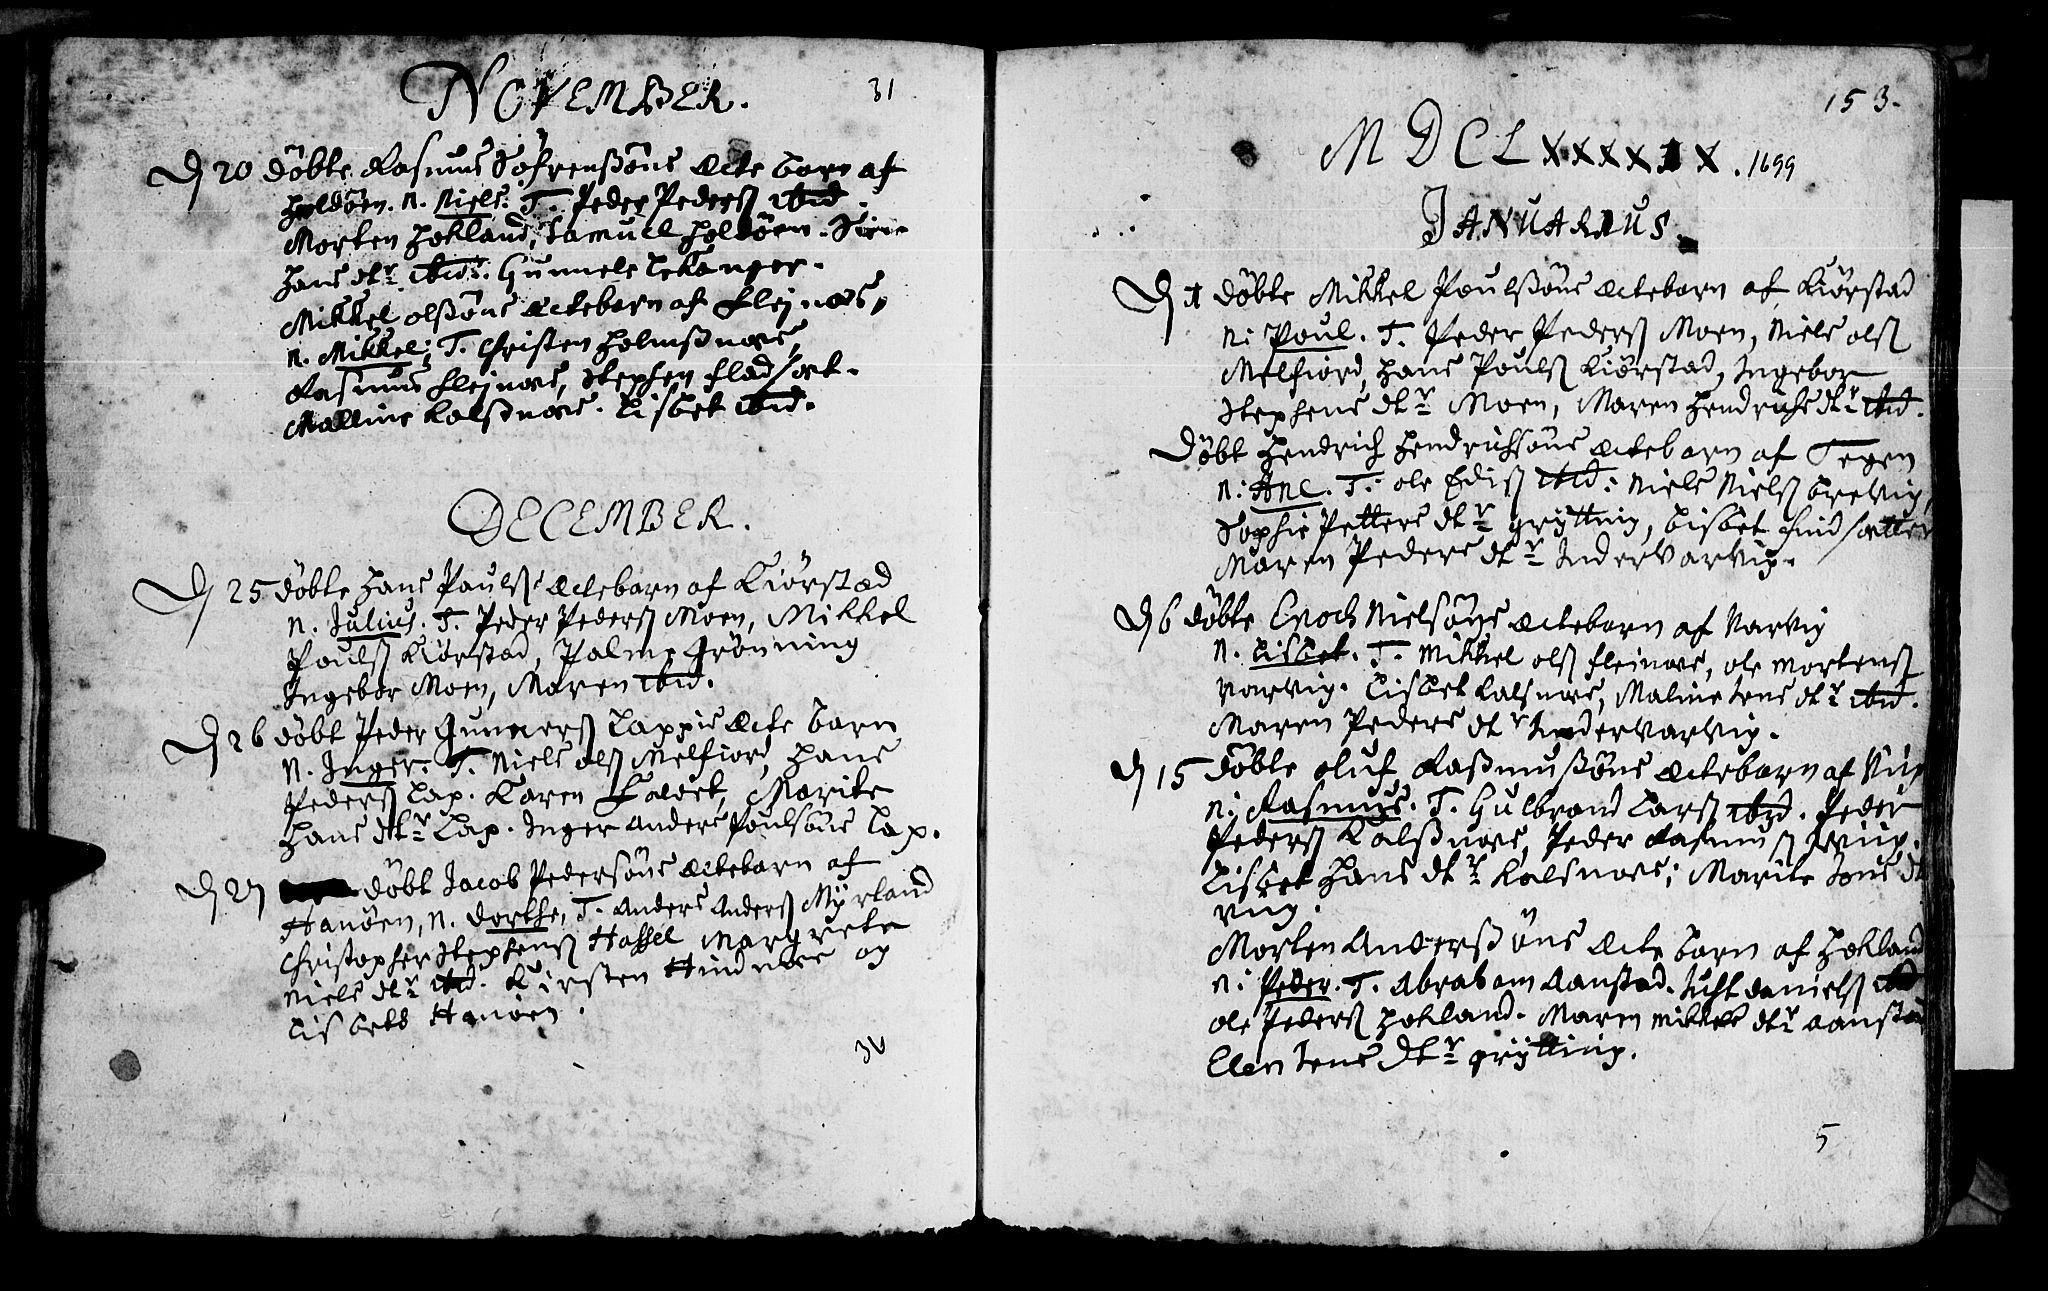 NOVEMBER. 31
D 20 döbte Rasmus Söfrensöns Ecte barn af
holdöen. N. Niels. T. Peder Peders: ibid.
Morten Hokland, Samuel holdöen. Siri
hans dtr ibid. Gunnele Lekanger.
Mikkel olsöns Ectebarn af flejnæs,
N. Mikkel; T. Christen holmsnæs,
Rasmus flejnæs, Stephen fladsæt.
Malline Kalsnæs. Lisbet ibid.
DECEMBER.
D 25 döbte hans Pouls: Ectebarn af Kiörstad
N. Julius. T. Peder Peders: Moen, Mikkel
Pouls: Kiörstad, Palme Grönning
Ingebor Moen, Maren ibid.
D 26 döbt Peder Gunners: Lappis Ecte barn
N. Inger. T. Niels ols: Melfiord, Hans
Peders: Lap. Karen, Marite
Hans dtr Lap. Inger Anders Poulsöns Lap.
D 27 döbt Jacob Pedersöns Ectebarn af
Hanöen, N. Dorthe, T. Anders Anders: Myrland
Christopher Stephens: Hassel Margrete
Niels dtr ibid. Kirsten Hindnæs og
Lisbeth Hanöen.
30
153.
MDCLXXXXIX. 1699
JANUARIUS.
D 1 döbte Mikkel Poulsöns Ectebarn af Kiörstad
N: Poul. T. Peder Peders: Moen, Niels ols:
Melfiord, Hans Pouls: Kiörstad, Ingebor
Stephens dtr Moen, Maren Hendrichs dtr ibid.
Döbt Hendrich Hendrichsöns Ectebarn af Tegen
N: Ane. T: ole Edis: ibid: Niels Niels: brevig,
Sophie Petters dtr grytting, Lisbet findsætter
Maren Peders dtr Indervarvig.
D 6 döbte Enoch Nielsöns Ectebarn af Varvig
N. Lisbet. T. Mikkel ols: flejnæs, ole Mortens:
varvig. Lisbet Kalsnæs, Maline Jens dtr ibid.
Maren Peders dtr Indervarvig.
D 15 döbte oluf Rasmusöns Ectebarn af Viig
N: Rasmus. T. Gulbrand Lars: ibid. Peder
Peders: Kalsnæs, Peder Rasmus: Viig.
Lisbet Hans dtr Kalsnæs; Marite Jons dt
viig.
Morten Andersöns Ecte barn af Hokland
N: Peder. T. Abraham Aanstad. Daniels: ibid
ole Peders: Hokland. Maren Mikkels dtr aanstad
Elen Jens dtr grytting.
5